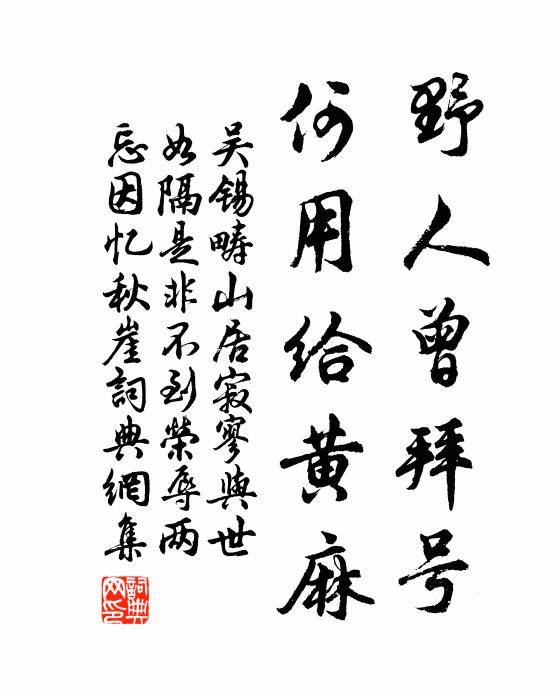 野人曾拜号
何用给黄麻
吴锡畴山居寂寥與世
如隔是非不到榮辱两
忘因忆秋崖詞典網集
詞典网印